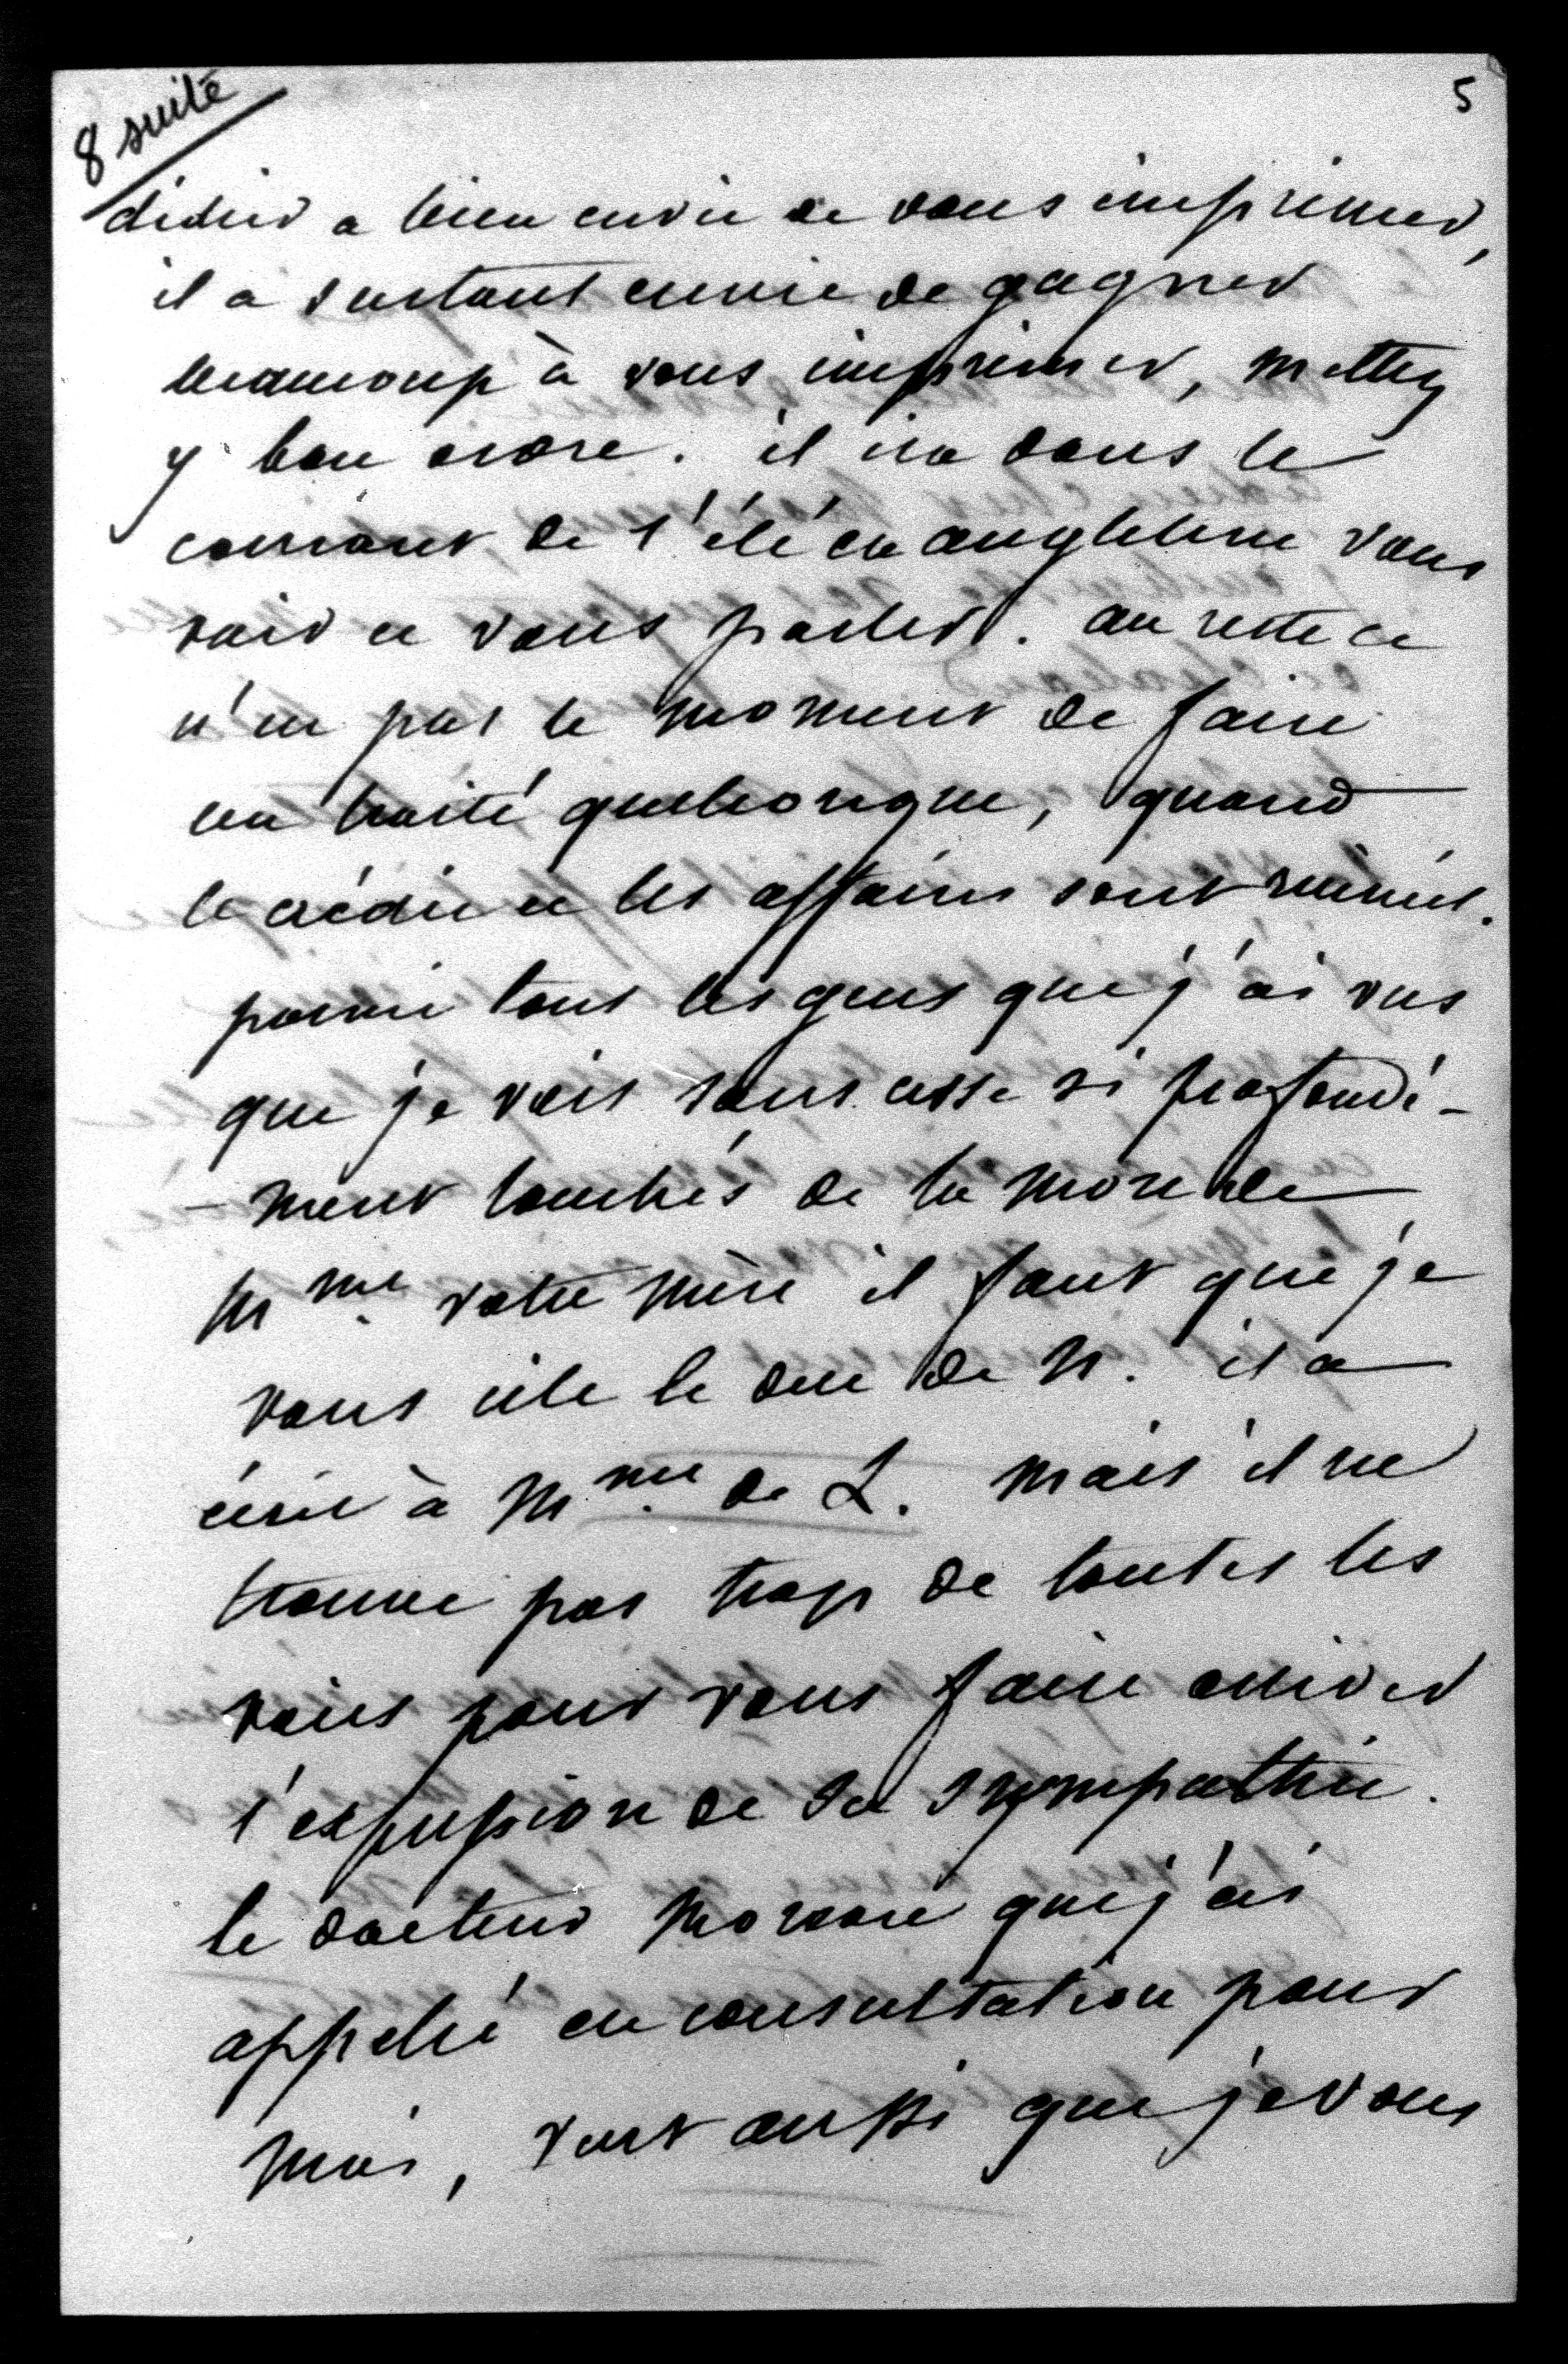 8 suite
5
didier a bien envie de vous imprimer,
il a surtout envie de gagner
beaucoup à vous imprimer, mettez
y bon ordre. il ira dans le
courant de l'été en angleterre vous
voir et vous parler. au reste ce
n'est pas le moment de faire
un traité quelconque, quand
le crédit et les affaires sont ruinés.
parmi tous les gens que j'ai vus
que je vois sans cesse si profondé-
-ment touchés de la mort de
Mme votre mère il faut que je
vous cite le duc de N. il a
écrit à Mme de L. mais il ne
trouve pas trop de toutes les
voies pour vous faire arriver
l'expression de sa sympathie.
le docteur que j'ai
appelé en consultation pour
moi, veut aussi que je vous